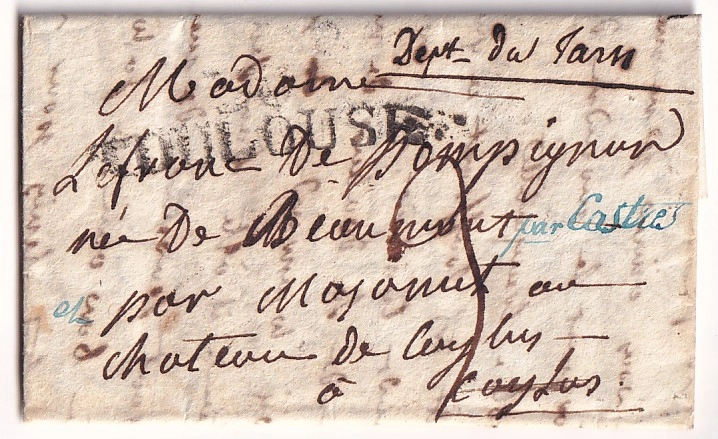 Dept du Tarn
Madame
TOULOUSE
Lefranc De Pompignan
née De Beaumont par Castres
et par Mazamet au
chateau de Caylus
à Caylus.